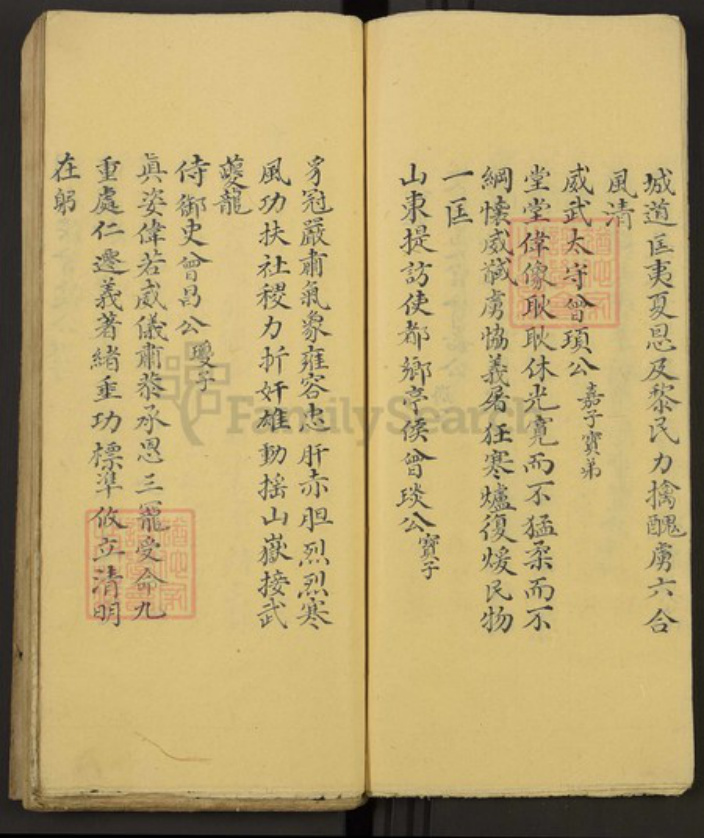 城道匡夷夏恩及黎民力擒醜虜六合
風清
威武太守曾頊公 嘉子寶弟
堂堂偉像耿耿休光寬而不猛柔而不
綱懷威馘虜恊義屠狂寒爐復煖民物
一匡
山東提訪使都鄉亭侯曾琰公 寶子
豸冠嚴肅氣象雍容忠肝赤胆烈烈寒
風功扶社稷力折奸雄動揺山嶽接武
夔龍
侍御史曾昌公
真姿偉若威儀肅恭承恩三寵受命九
重處仁遷義著緒垂功標準攸立清明
在躬
FamilySearch